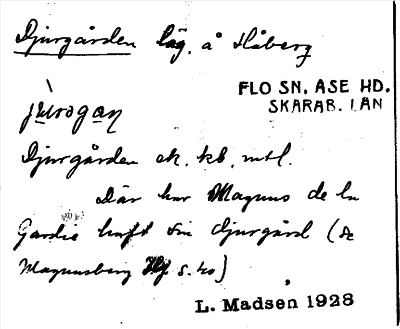 Djurgården läg. å Håberg
FLO SN, ÅSE HD.
SKARAB. LÄN
Djurgården ek. kb, mtl.
Där har Magnus de la
Gardie haft sin djurgård (se
Magnusberg s. ko)
L. Madsen 1928